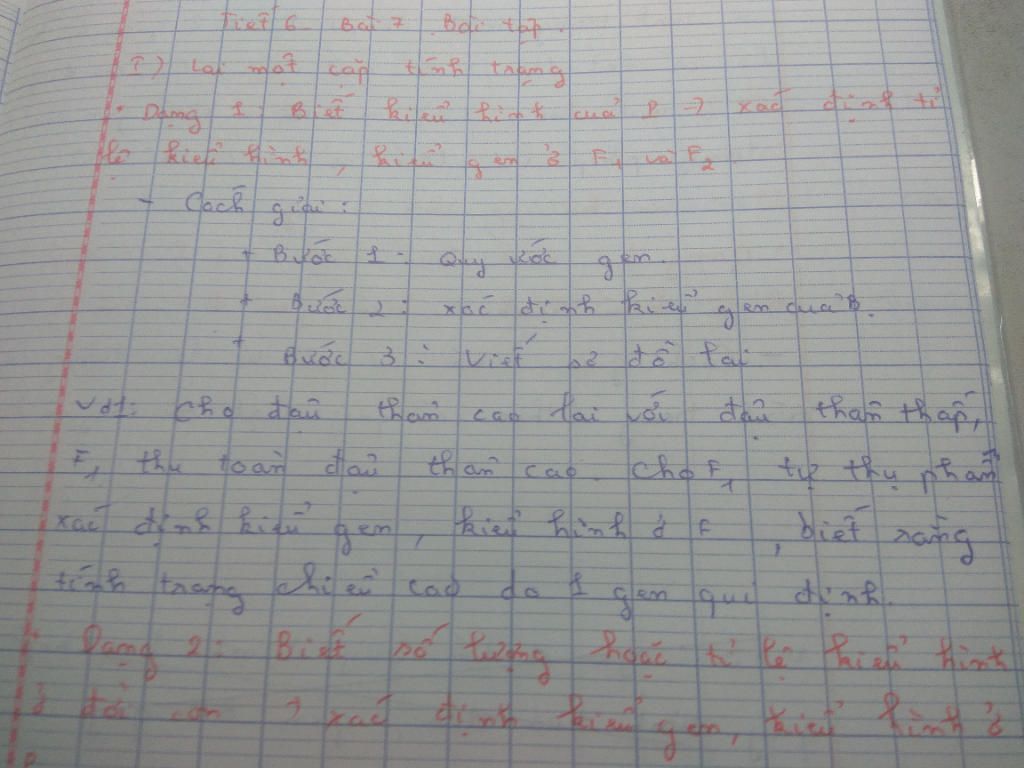 Tiết 6 Bài 7 Bài tập.
I) Lai một cặp tính trạng
* Dạng 1: Biết kiểu hình của P → xác định tỉ
lệ kiểu hình, kiểu gen ở F1 và F2
- Cách giải:
+ Bước 1: Quy ước gen.
+ Bước 2: xác định kiểu gen của P.
+ Bước 3: Viết sơ đồ lai
Vd1: Cho đậu thân cao lai với đậu thân thấp,
F1 thu toàn đậu thân cao. Cho F1 tự thụ phấn
xác định kiểu gen, kiểu hình ở F , biết rằng
tính trạng chiều cao do 1 gen qui định.
* Dạng 2: Biết số lượng hoặc tỉ lệ kiểu hình
ở đời con → xác định kiểu gen, kiểu hình ở
P